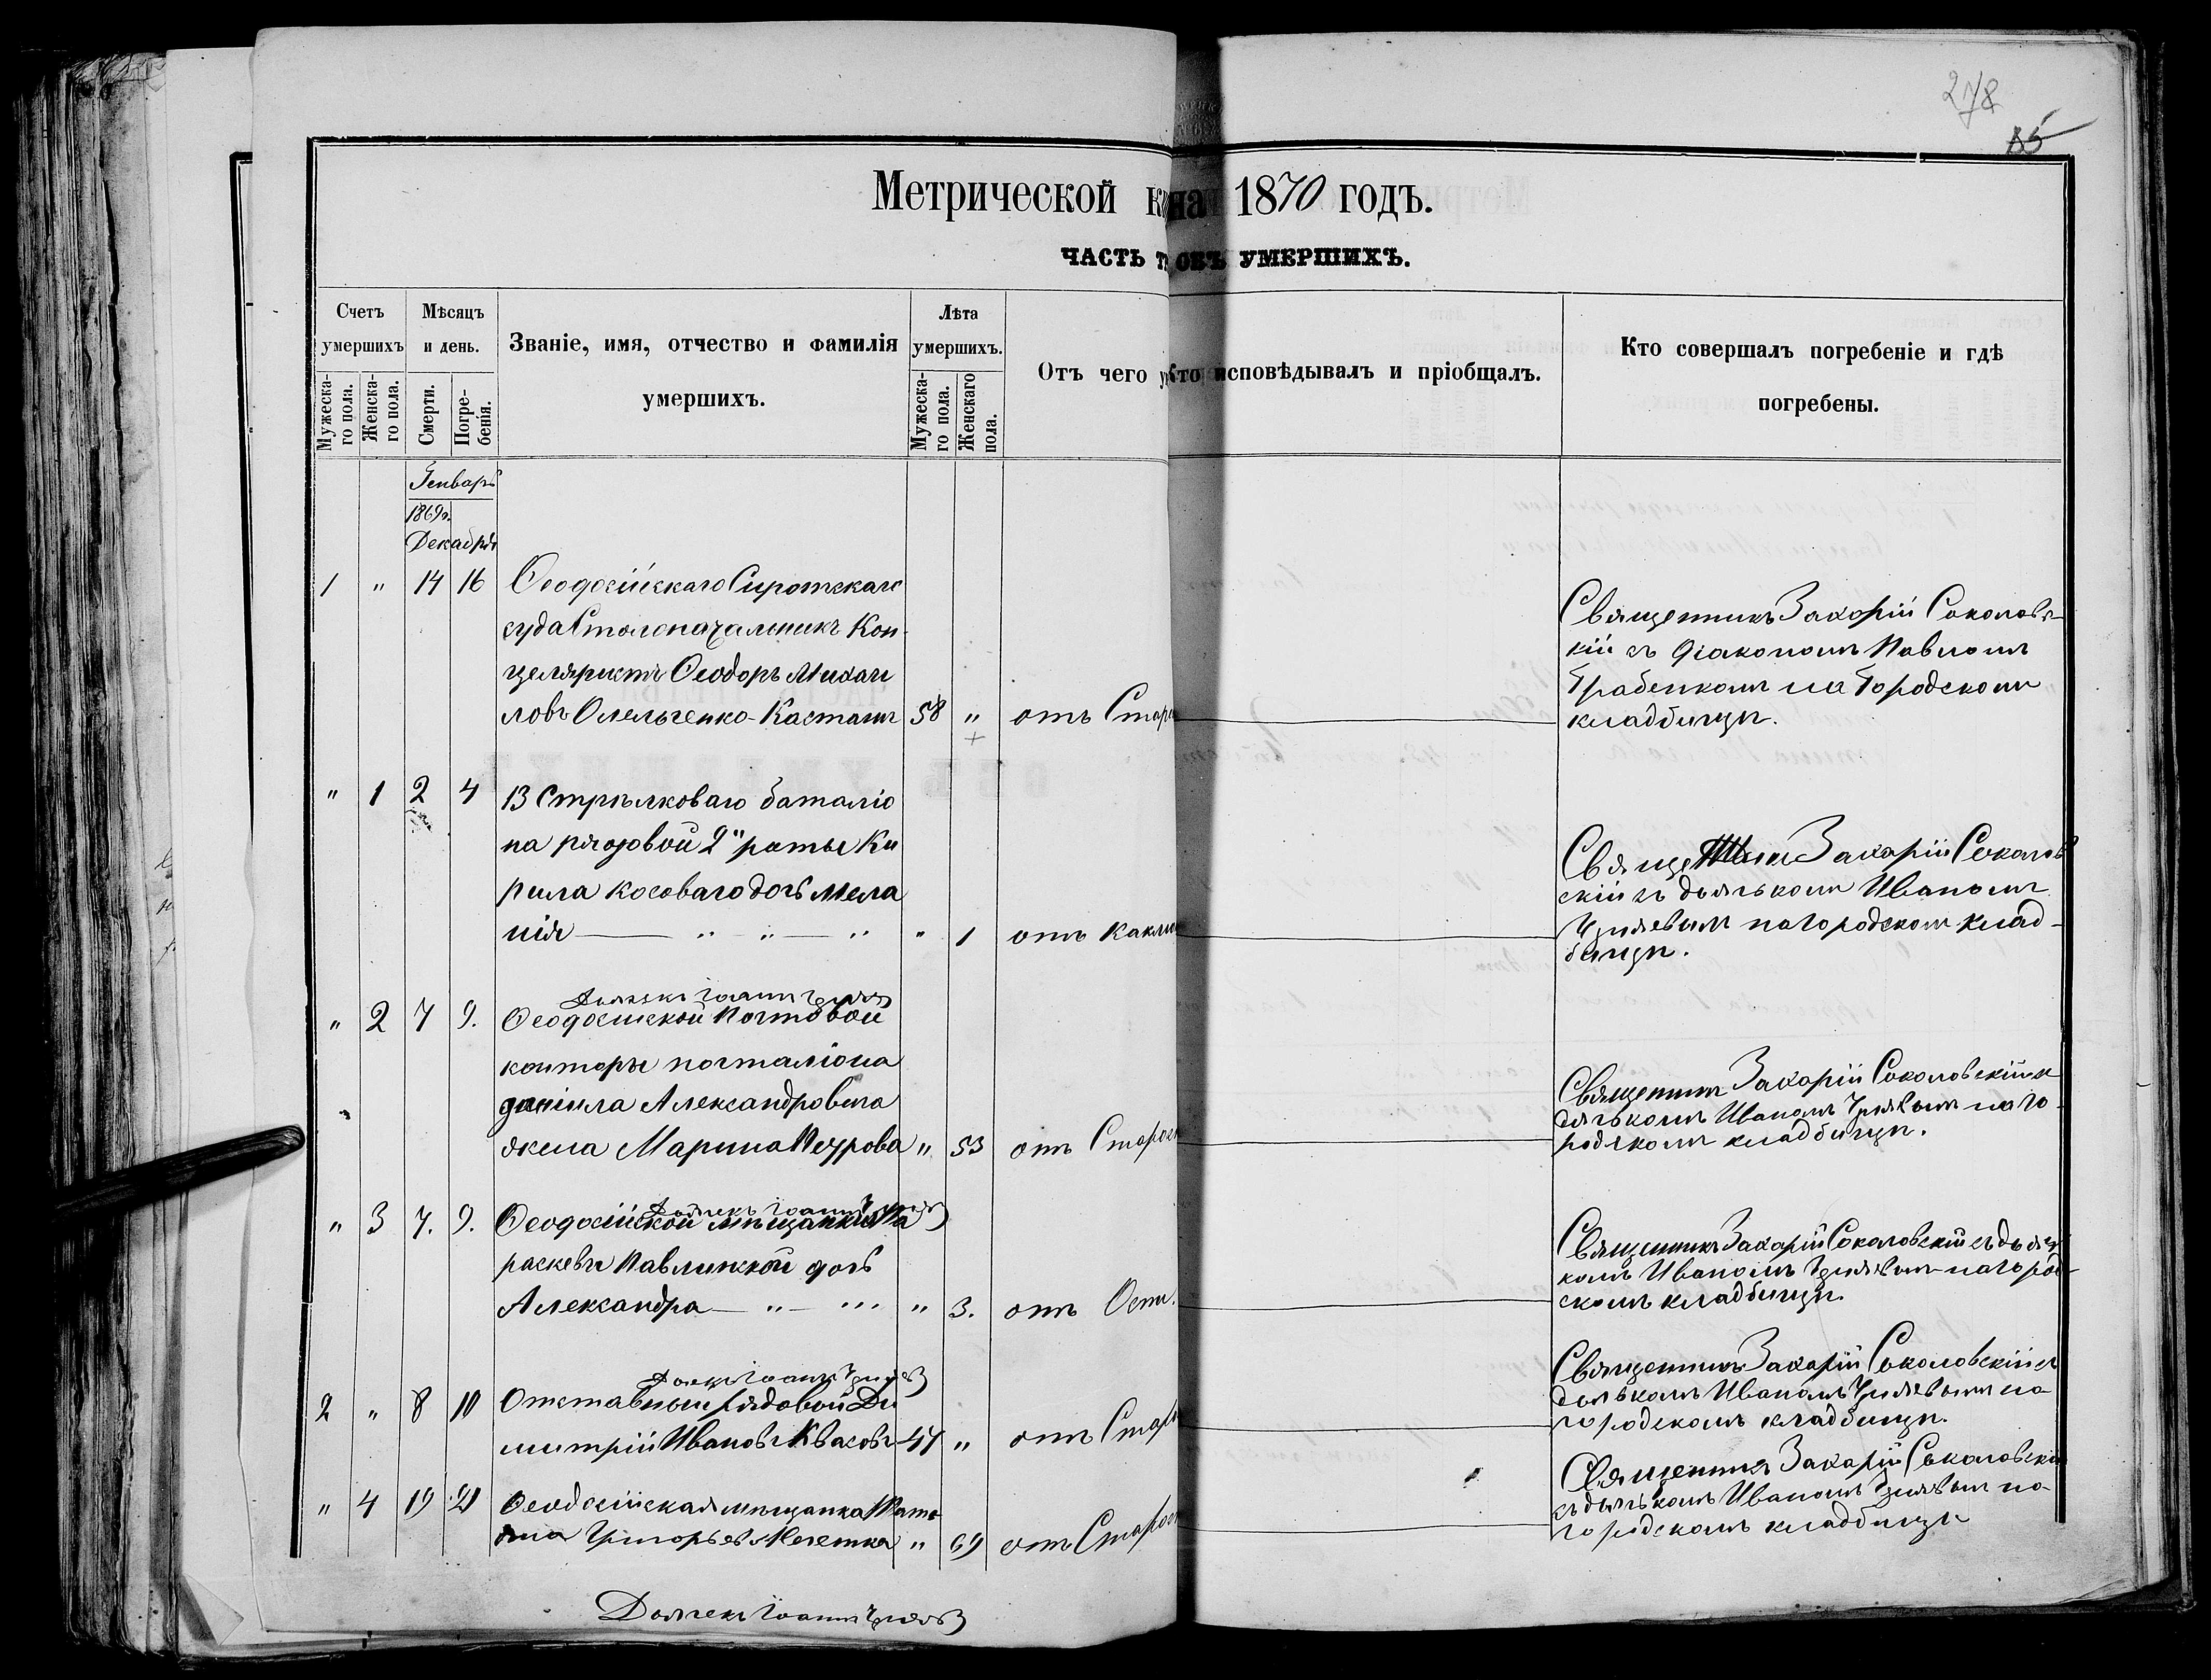 278
85
Метрической кн на 1870 годъ.
ЧАСТЬ Т ОБЪ УМЕРШИХЪ.
Счетъ умершихъ
Мужеска-го пола.
Женска-го пола.
Мѣсяцъ и день.
Смерти.
Погре-бенія.
Званіе, имя, отчество и фамилія умершихъ.
Лѣта умершихъ.
Мужеска-го пола.
Женскаго пола.
Отъ чего у
Кто исповѣдывалъ и пріобщалъ.
Кто совершалъ погребеніе и гдѣ погребены.
Генварь
1869г.
Декабря
1 " 14 16 Ѳеодосійскаго Сиротскаго
суда Столоначальникъ Кан-
целяристъ Ѳеодоръ Михаи
ловъ Омельченко-Кастанъ 58 " отъ Старо
Священникъ Захарій Соколовс-
кій съ Діакономъ Павломъ
Грабенкомъ на Городскомъ
кладбищѣ.
" 1 2 4 13 Стрѣлковаго баталіо
на рядовой 2" роты Ки
рила Косоваго дочь Мела
нія " " " " 1 отъ Каклю
Захарій Соколов
скій съ дьячкомъ Иваномъ
на городскомъ клад-
бищѣ.
Дьячекъ Іоаннъ
" 2 7 9. Ѳеодосійской Почтовой
конторы почталіона
Даніила Александровича
жена Марина Петрова " 53 отъ Старос
Священникъ Захарій Соколовскій съ
дьячкомъ Иваномъ на го-
родскомъ кладбищѣ.
Дьячекъ Іоаннъ
" 3 7. 9. Ѳеодосійской мѣщанки Па
раскевы Павлинской дочь
Александра " " " 3. отъ Осп.
Священникъ Захарій Соколовскій съ дьяч
комъ Иваномъ на город-
скомъ кладбищѣ.
Дьячекъ Іоаннъ
2 " 8 10 Отставный рядовой Ди
митрій Ивановъ Квасовъ 47 " отъ Стар
Священникъ Захарій Соколовскій съ
дьячкомъ Иваномъ на
городскомъ кладбищѣ.
" 4 19 21 Ѳеодосійская мѣщанка
Григорьев " 69 отъ Старос
Священникъ Захарій Соколовскій
съ дьячкомъ Иваномъ на
городскомъ кладбищѣ
Дьячекъ Іоаннъ